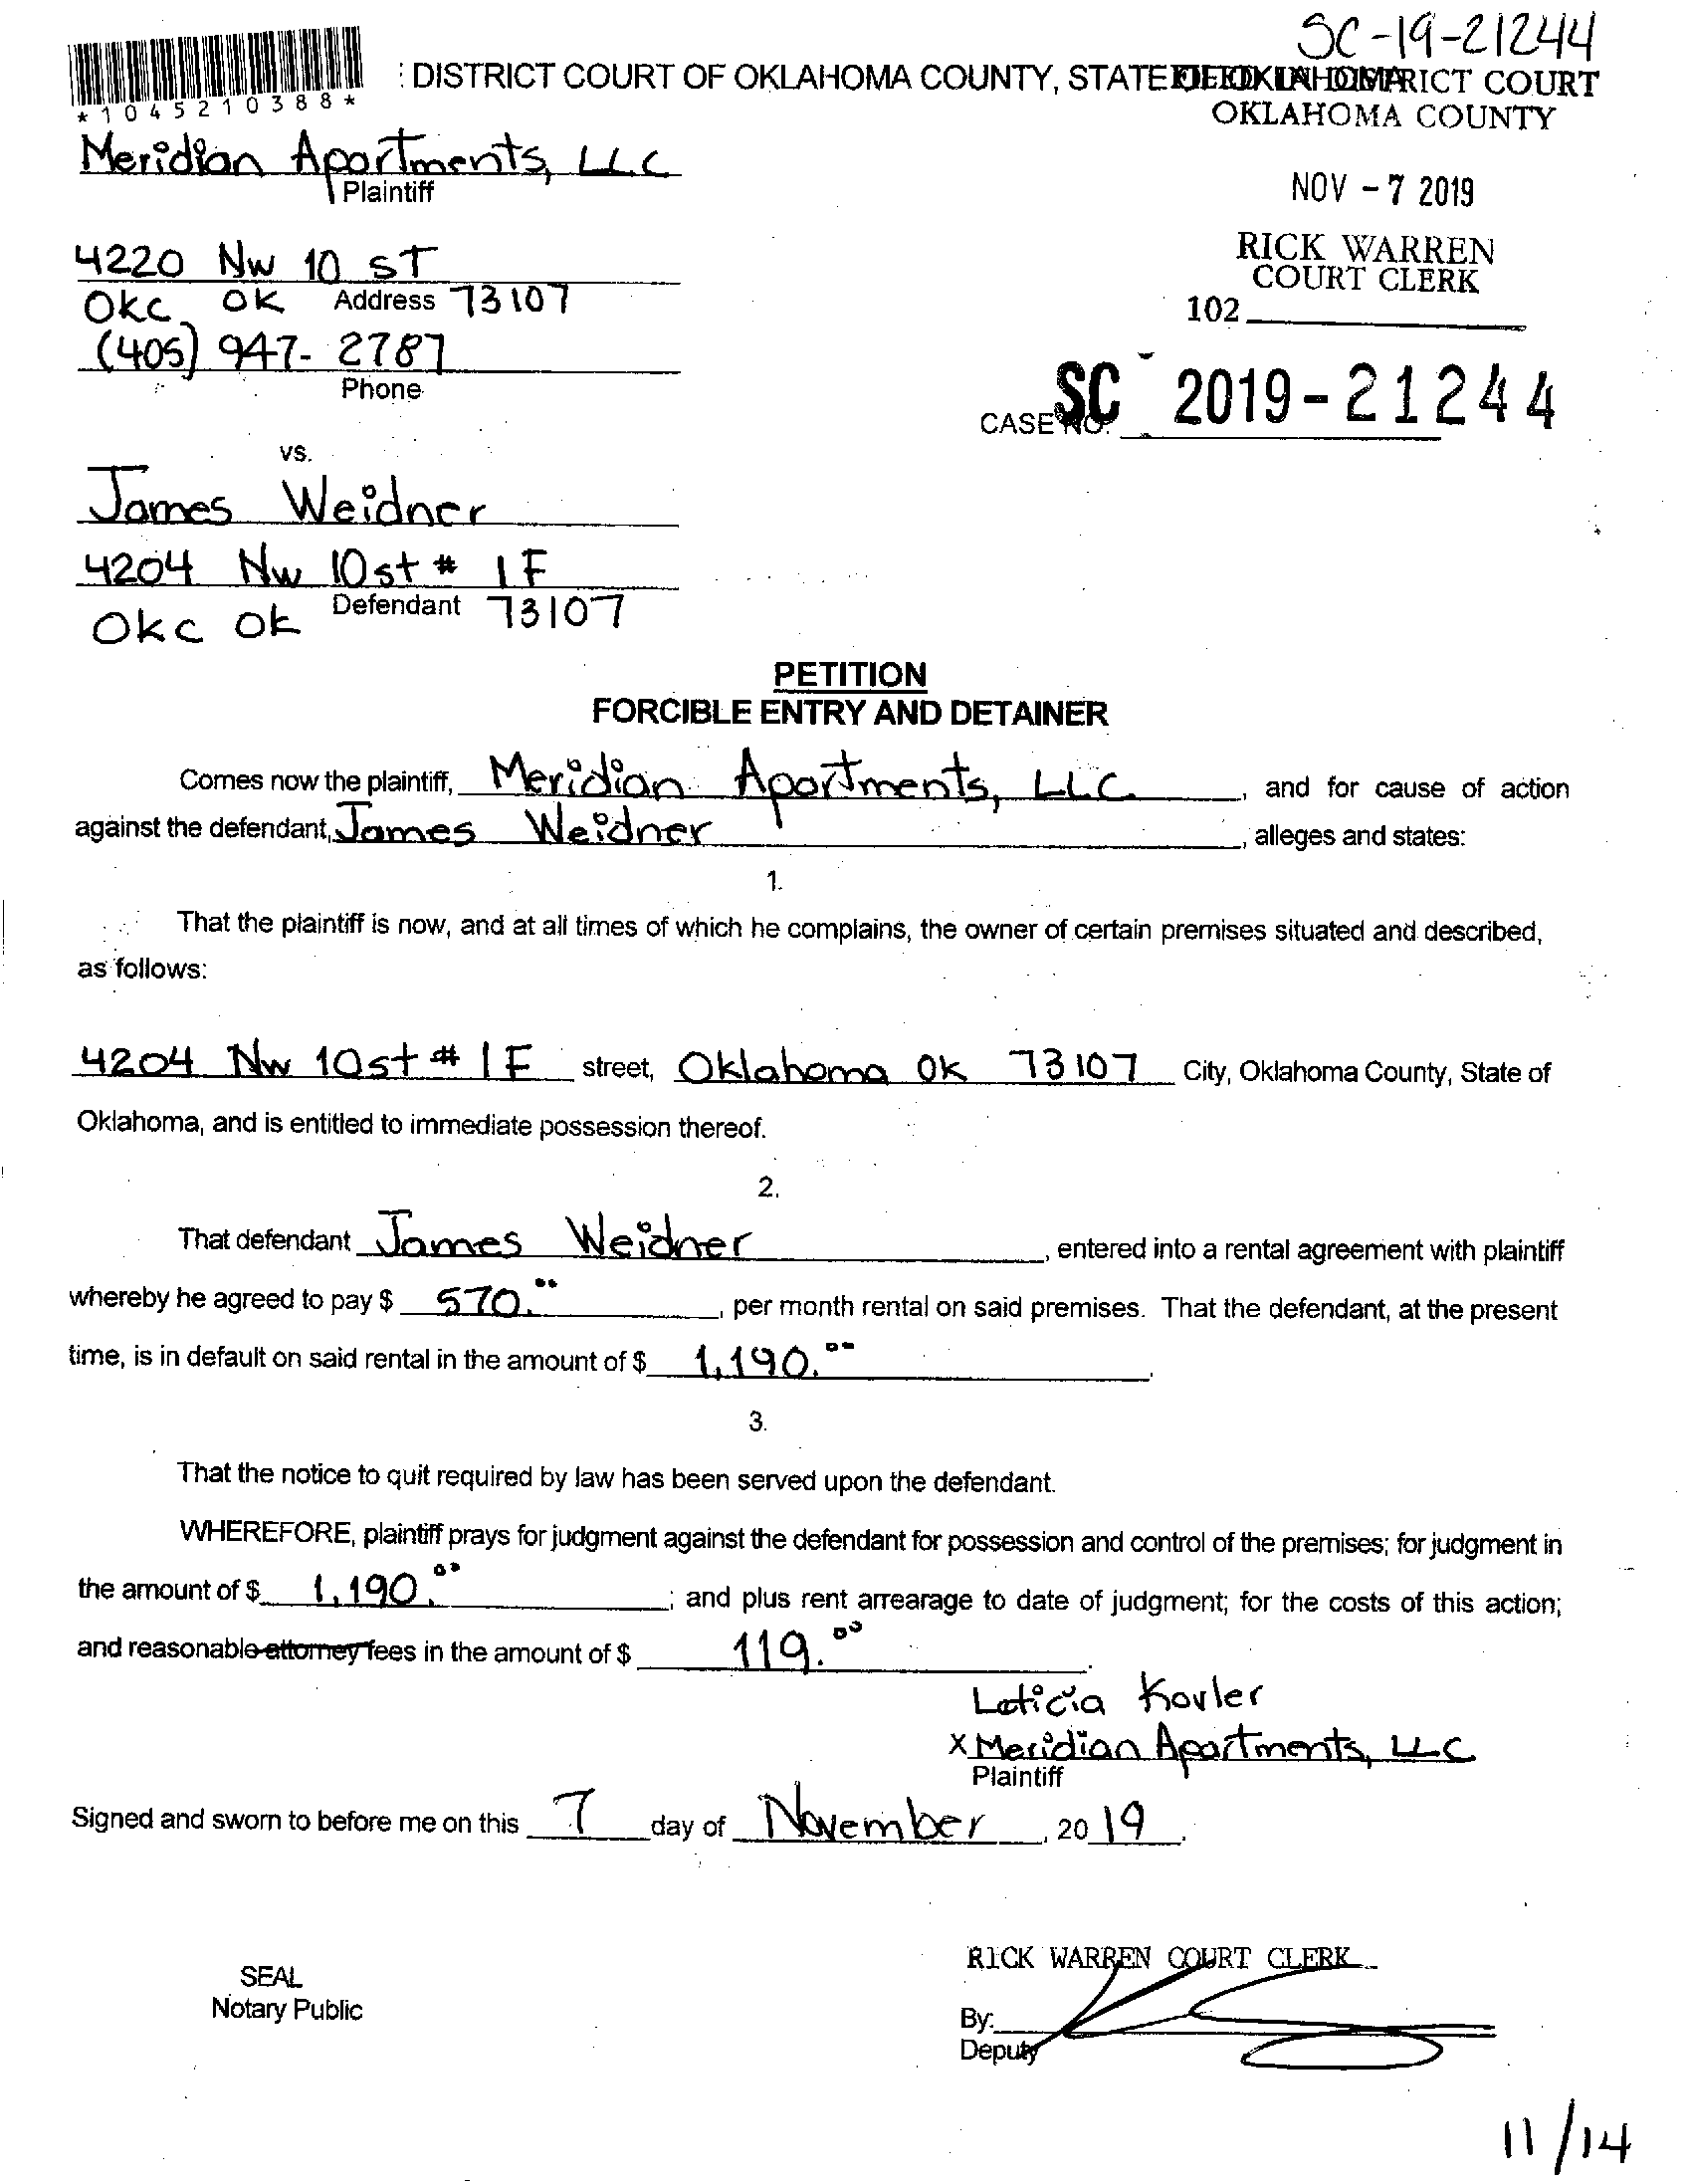 SC-19-21244
: DISTRICT COURT OF OKLAHOMA COUNTY, STATE
DISTRICT COURT
OKLAHOMA COUNTY
*1045210388*
Meridian Apartments, LLC
Plaintiff
NOV - 7 2019
4220 NW 10 ST
RICK WARREN
COURT CLERK
OKC OK Address 73107
102
(405) 947-2787
Phone
CASE NO. SC 2019-21244
vs.
James Weidner
4204 NW 10st # 1F
Defendant
OKC OK 73107
PETITION
FORCIBLE ENTRY AND DETAINER
Comes now the plaintiff, Meridian Apartments, LLC, and for cause of action
against the defendant, James Weidner, alleges and states:
1.
That the plaintiff is now, and at all times of which he complains, the owner of certain premises situated and described,
as follows:
4204 NW 10st # 1F street, Oklahoma OK 73107 City, Oklahoma County, State of
Oklahoma, and is entitled to immediate possession thereof.
2.
That defendant James Weidner, entered into a rental agreement with plaintiff
whereby he agreed to pay $ 570.00, per month rental on said premises. That the defendant, at the present
time, is in default on said rental in the amount of $ 1,190.00.
3.
That the notice to quit required by law has been served upon the defendant.
WHEREFORE, plaintiff prays for judgment against the defendant for possession and control of the premises; for judgment in
the amount of $ 1,190.00; and plus rent arrearage to date of judgment; for the costs of this action;
and reasonable attorney fees in the amount of $ 119.00.
Leticia Kovler
X Meridian Apartments, LLC
Plaintiff
Signed and sworn to before me on this 7 day of November, 2019.
RICK WARREN COURT CLERK
SEAL
Notary Public
By:
Deputy
11/14